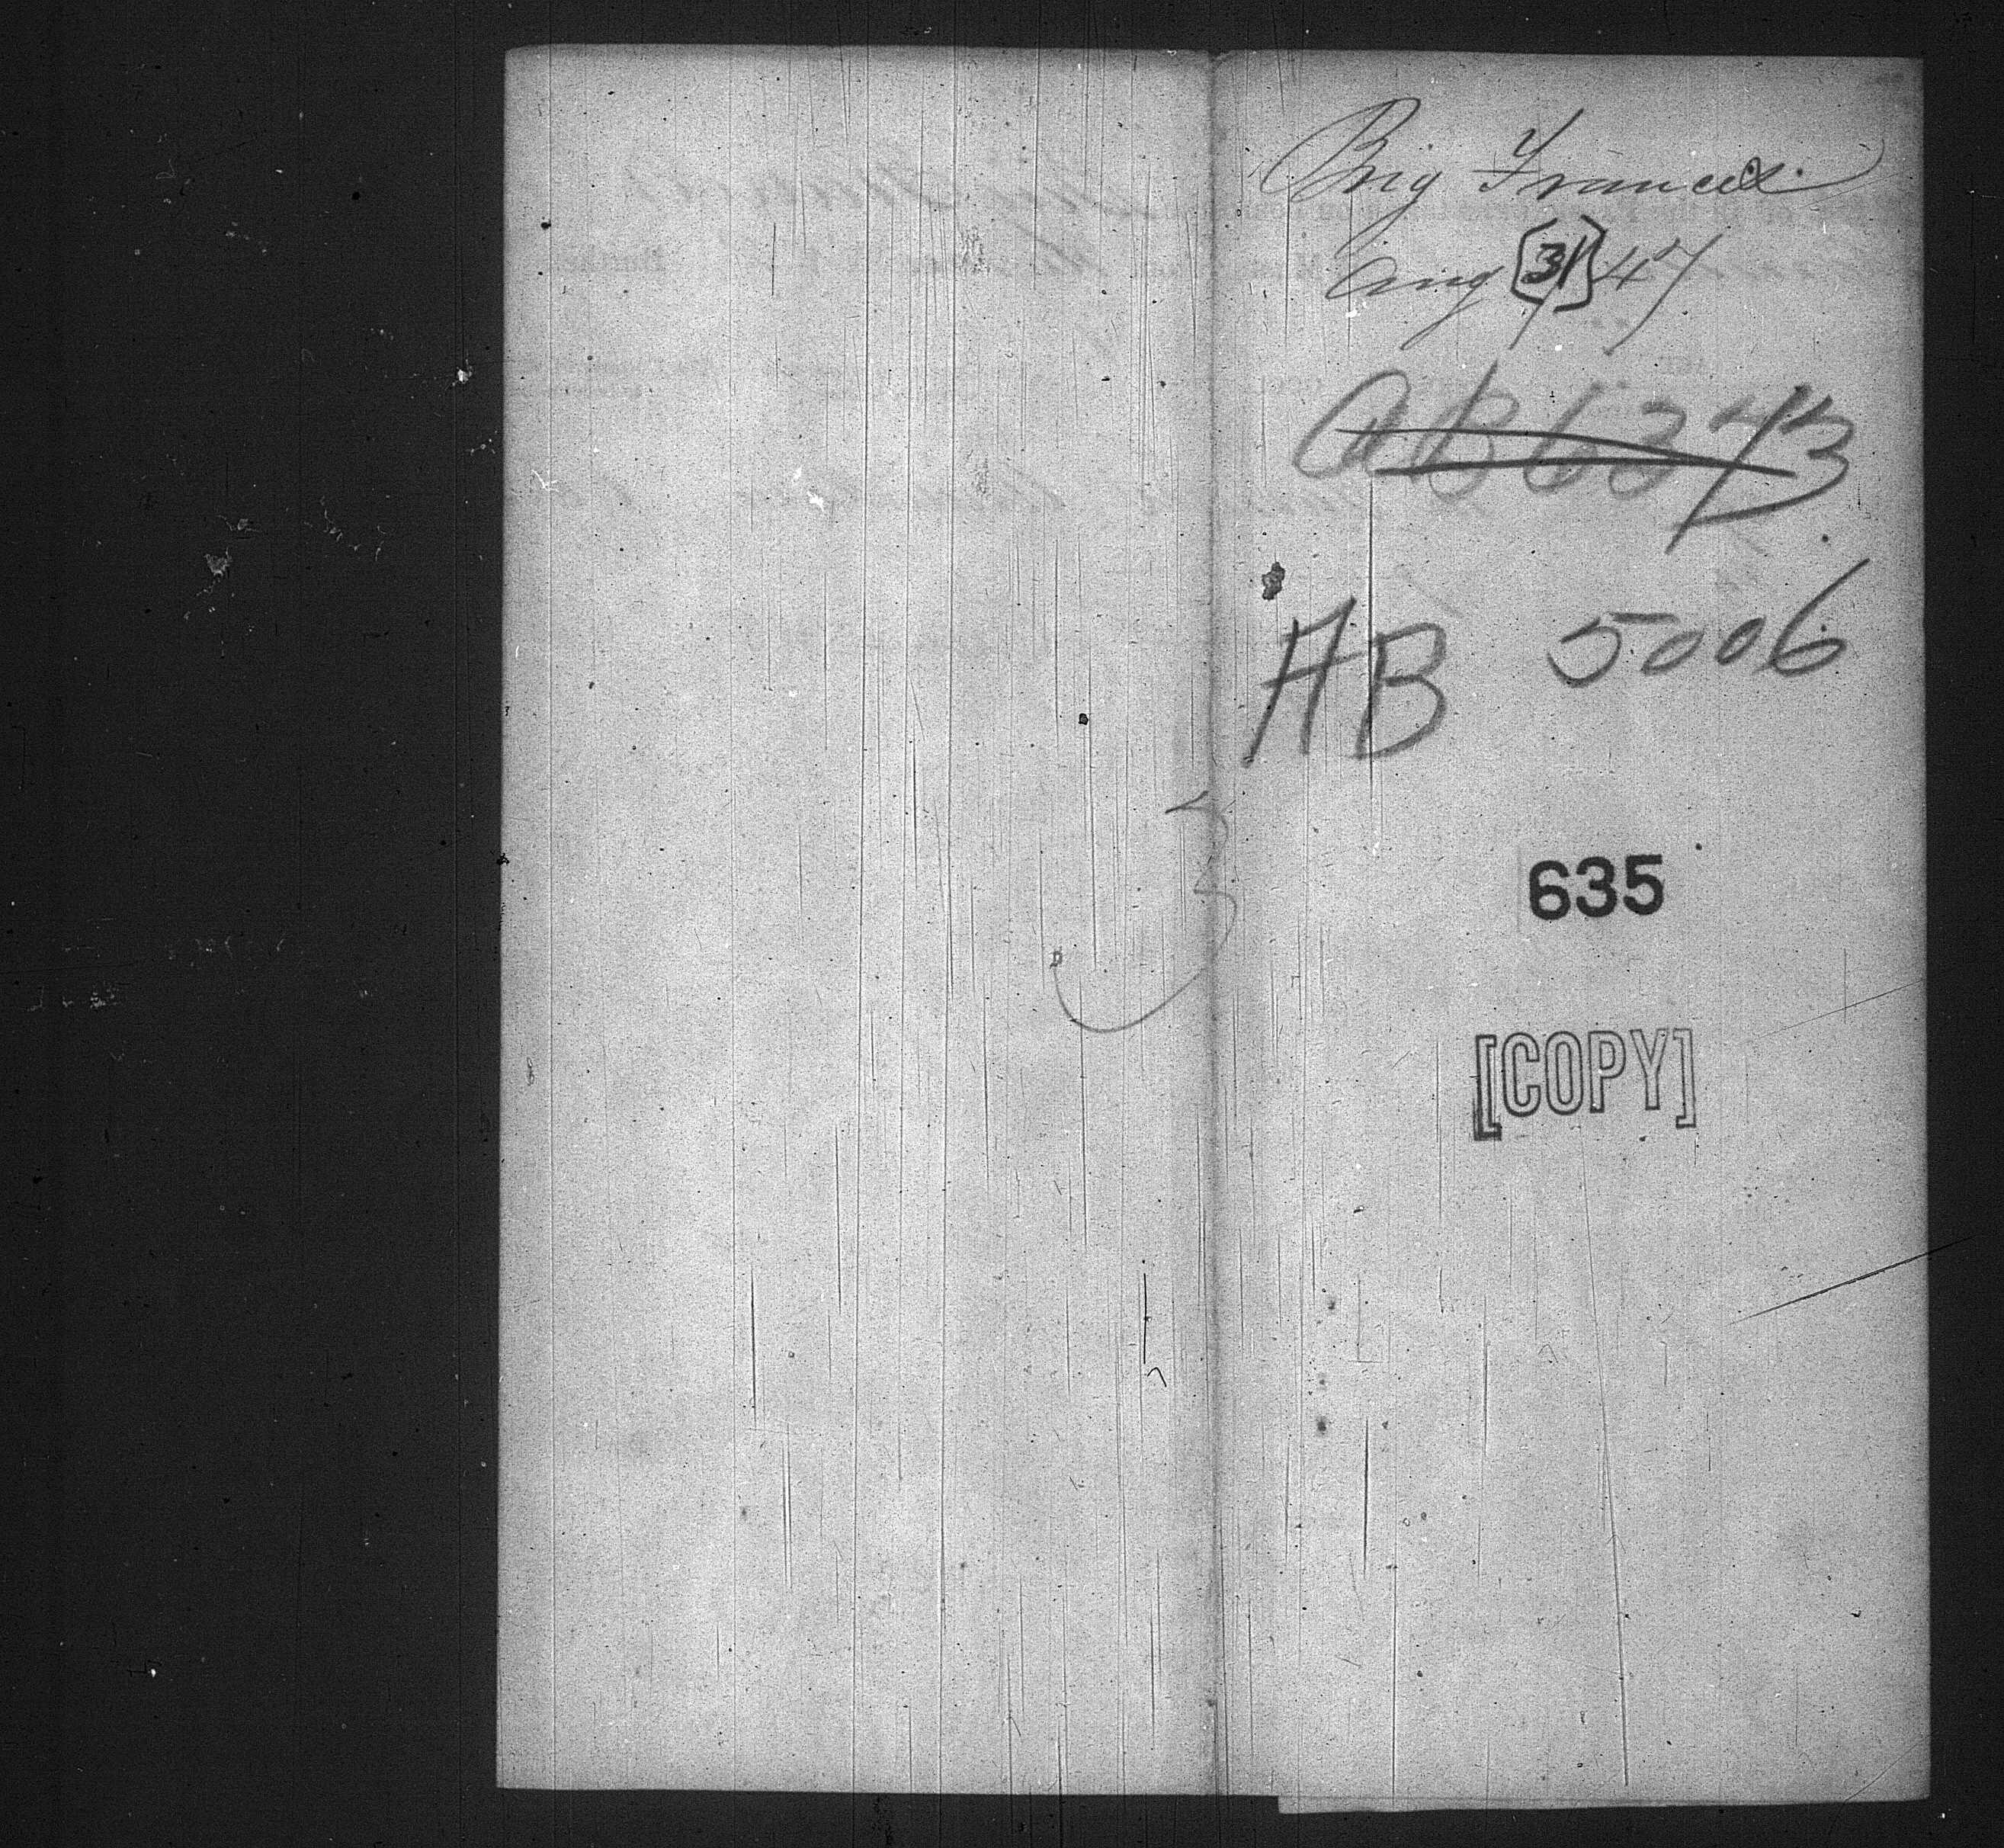 Brig Frances
Aug [31] 47
AB 6373
AB 5006
635
[COPY]